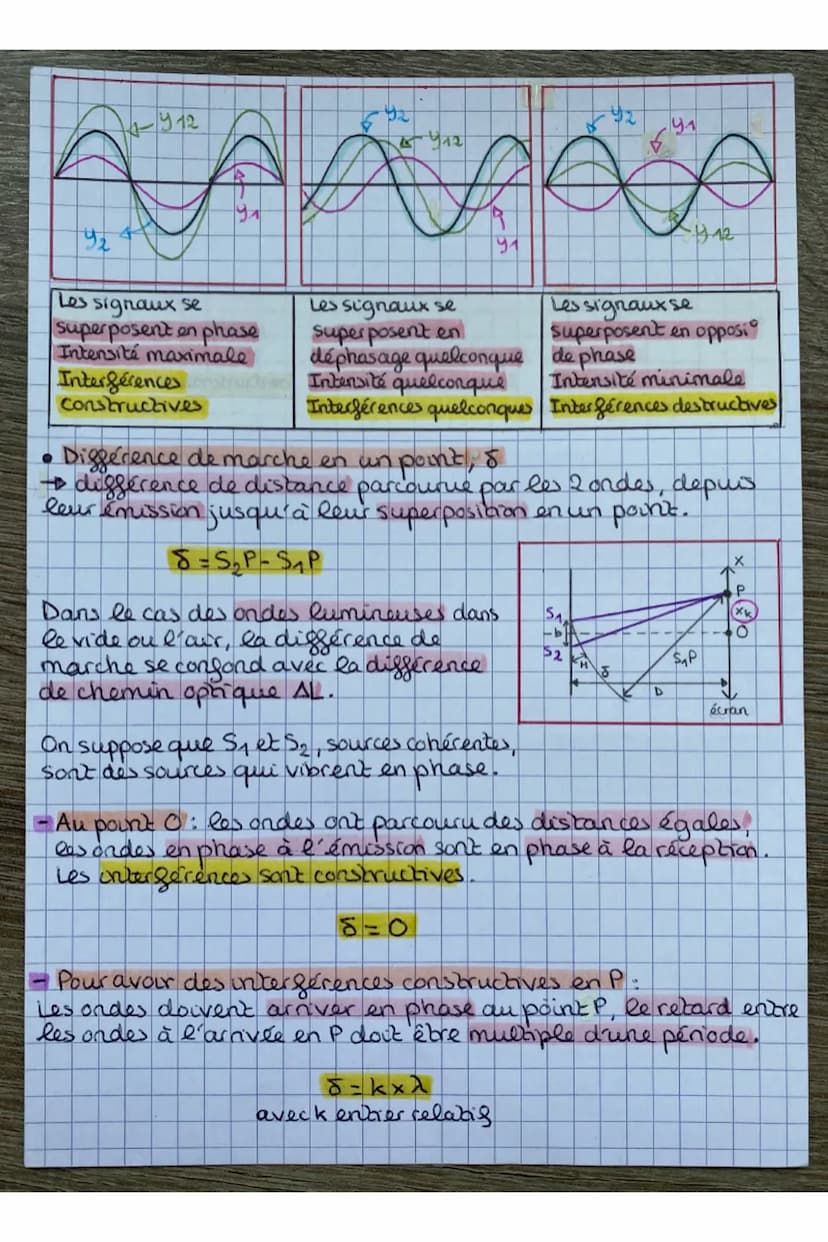 y12
y2
y1
y2
y12
y1
y2
y1
y12
Les signaux se
superposent en phase
Intensité maximale
Interférences
constructives
Les signaux se
superposent en
déphasage quelconque
Intensité quelconque
Interférences quelconques
Les signaux se
superposent en opposi°
de phase
Intensité minimale
Interférences destructives
• Différence de marche en un point, δ
→ différence de distance parcourue par les 2 ondes, depuis
leur émission jusqu'à leur superposition en un point.
δ = S₂P - S₁P
Dans le cas des ondes lumineuses dans
le vide ou l'air, la différence de
marche se confond avec la différence
de chemin optique ΔL.
x
P
xk
O
S1
b
S2
H
δ
S₁P
D
écran
On suppose que S₁ et S₂, sources cohérentes,
sont des sources qui vibrent en phase.
- Au point O : les ondes ont parcouru des distances égales,
les ondes en phase à l'émission sont en phase à la réception.
Les interférences sont constructives.
δ = 0
- Pour avoir des interférences constructives en P :
Les ondes doivent arriver en phase au point P, le retard entre
les ondes à l'arrivée en P doit être multiple d'une période.
δ = k x λ
avec k entier relatif